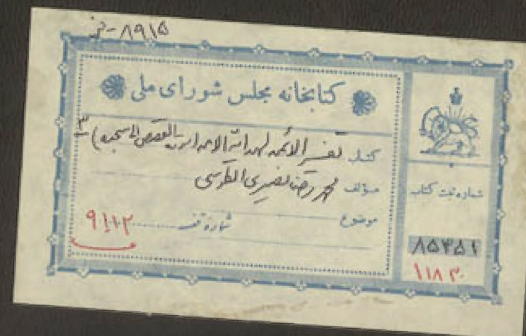 ۸۹۱۵ - خ
کتابخانه مجلس شورای ملی
کتاب تفسیر الائمه لهدایة الامه (سورة القصص الی سجده) ۳
مؤلف محمد رضا نصیری الطوسی
موضوع
شماره قفسه ۹۱۱۲
شماره ثبت کتاب
۸۵۴۵۱
۱۱۸۳۰